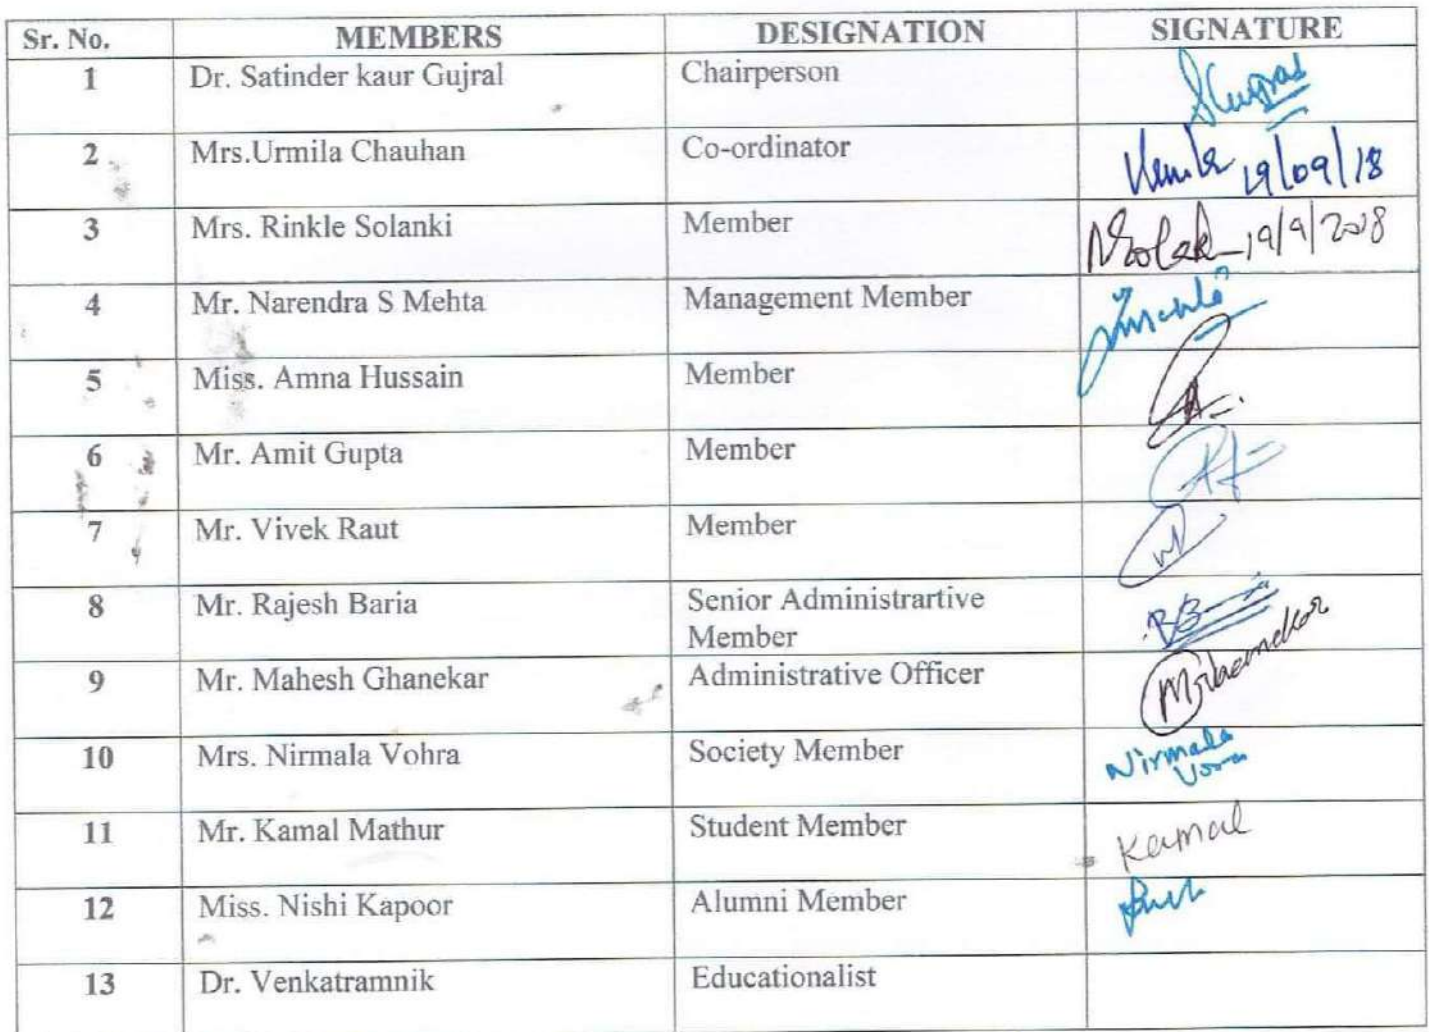 Sr. No. MEMBERS DESIGNATION SIGNATURE
1 Dr. Satinder kaur Gujral Chairperson
2 Mrs.Urmila Chauhan Co-ordinator 19/09/18
3 Mrs. Rinkle Solanki Member 19/9/2018
4 Mr. Narendra S Mehta Management Member
5 Miss. Amna Hussain Member
6 Mr. Amit Gupta Member
7 Mr. Vivek Raut Member
8 Mr. Rajesh Baria Senior Administrartive
Member
9 Mr. Mahesh Ghanekar Administrative Officer
10 Mrs. Nirmala Vohra Society Member Nirmala
Vora
11 Mr. Kamal Mathur Student Member Kamal
12 Miss. Nishi Kapoor Alumni Member
13 Dr. Venkatramnik Educationalist